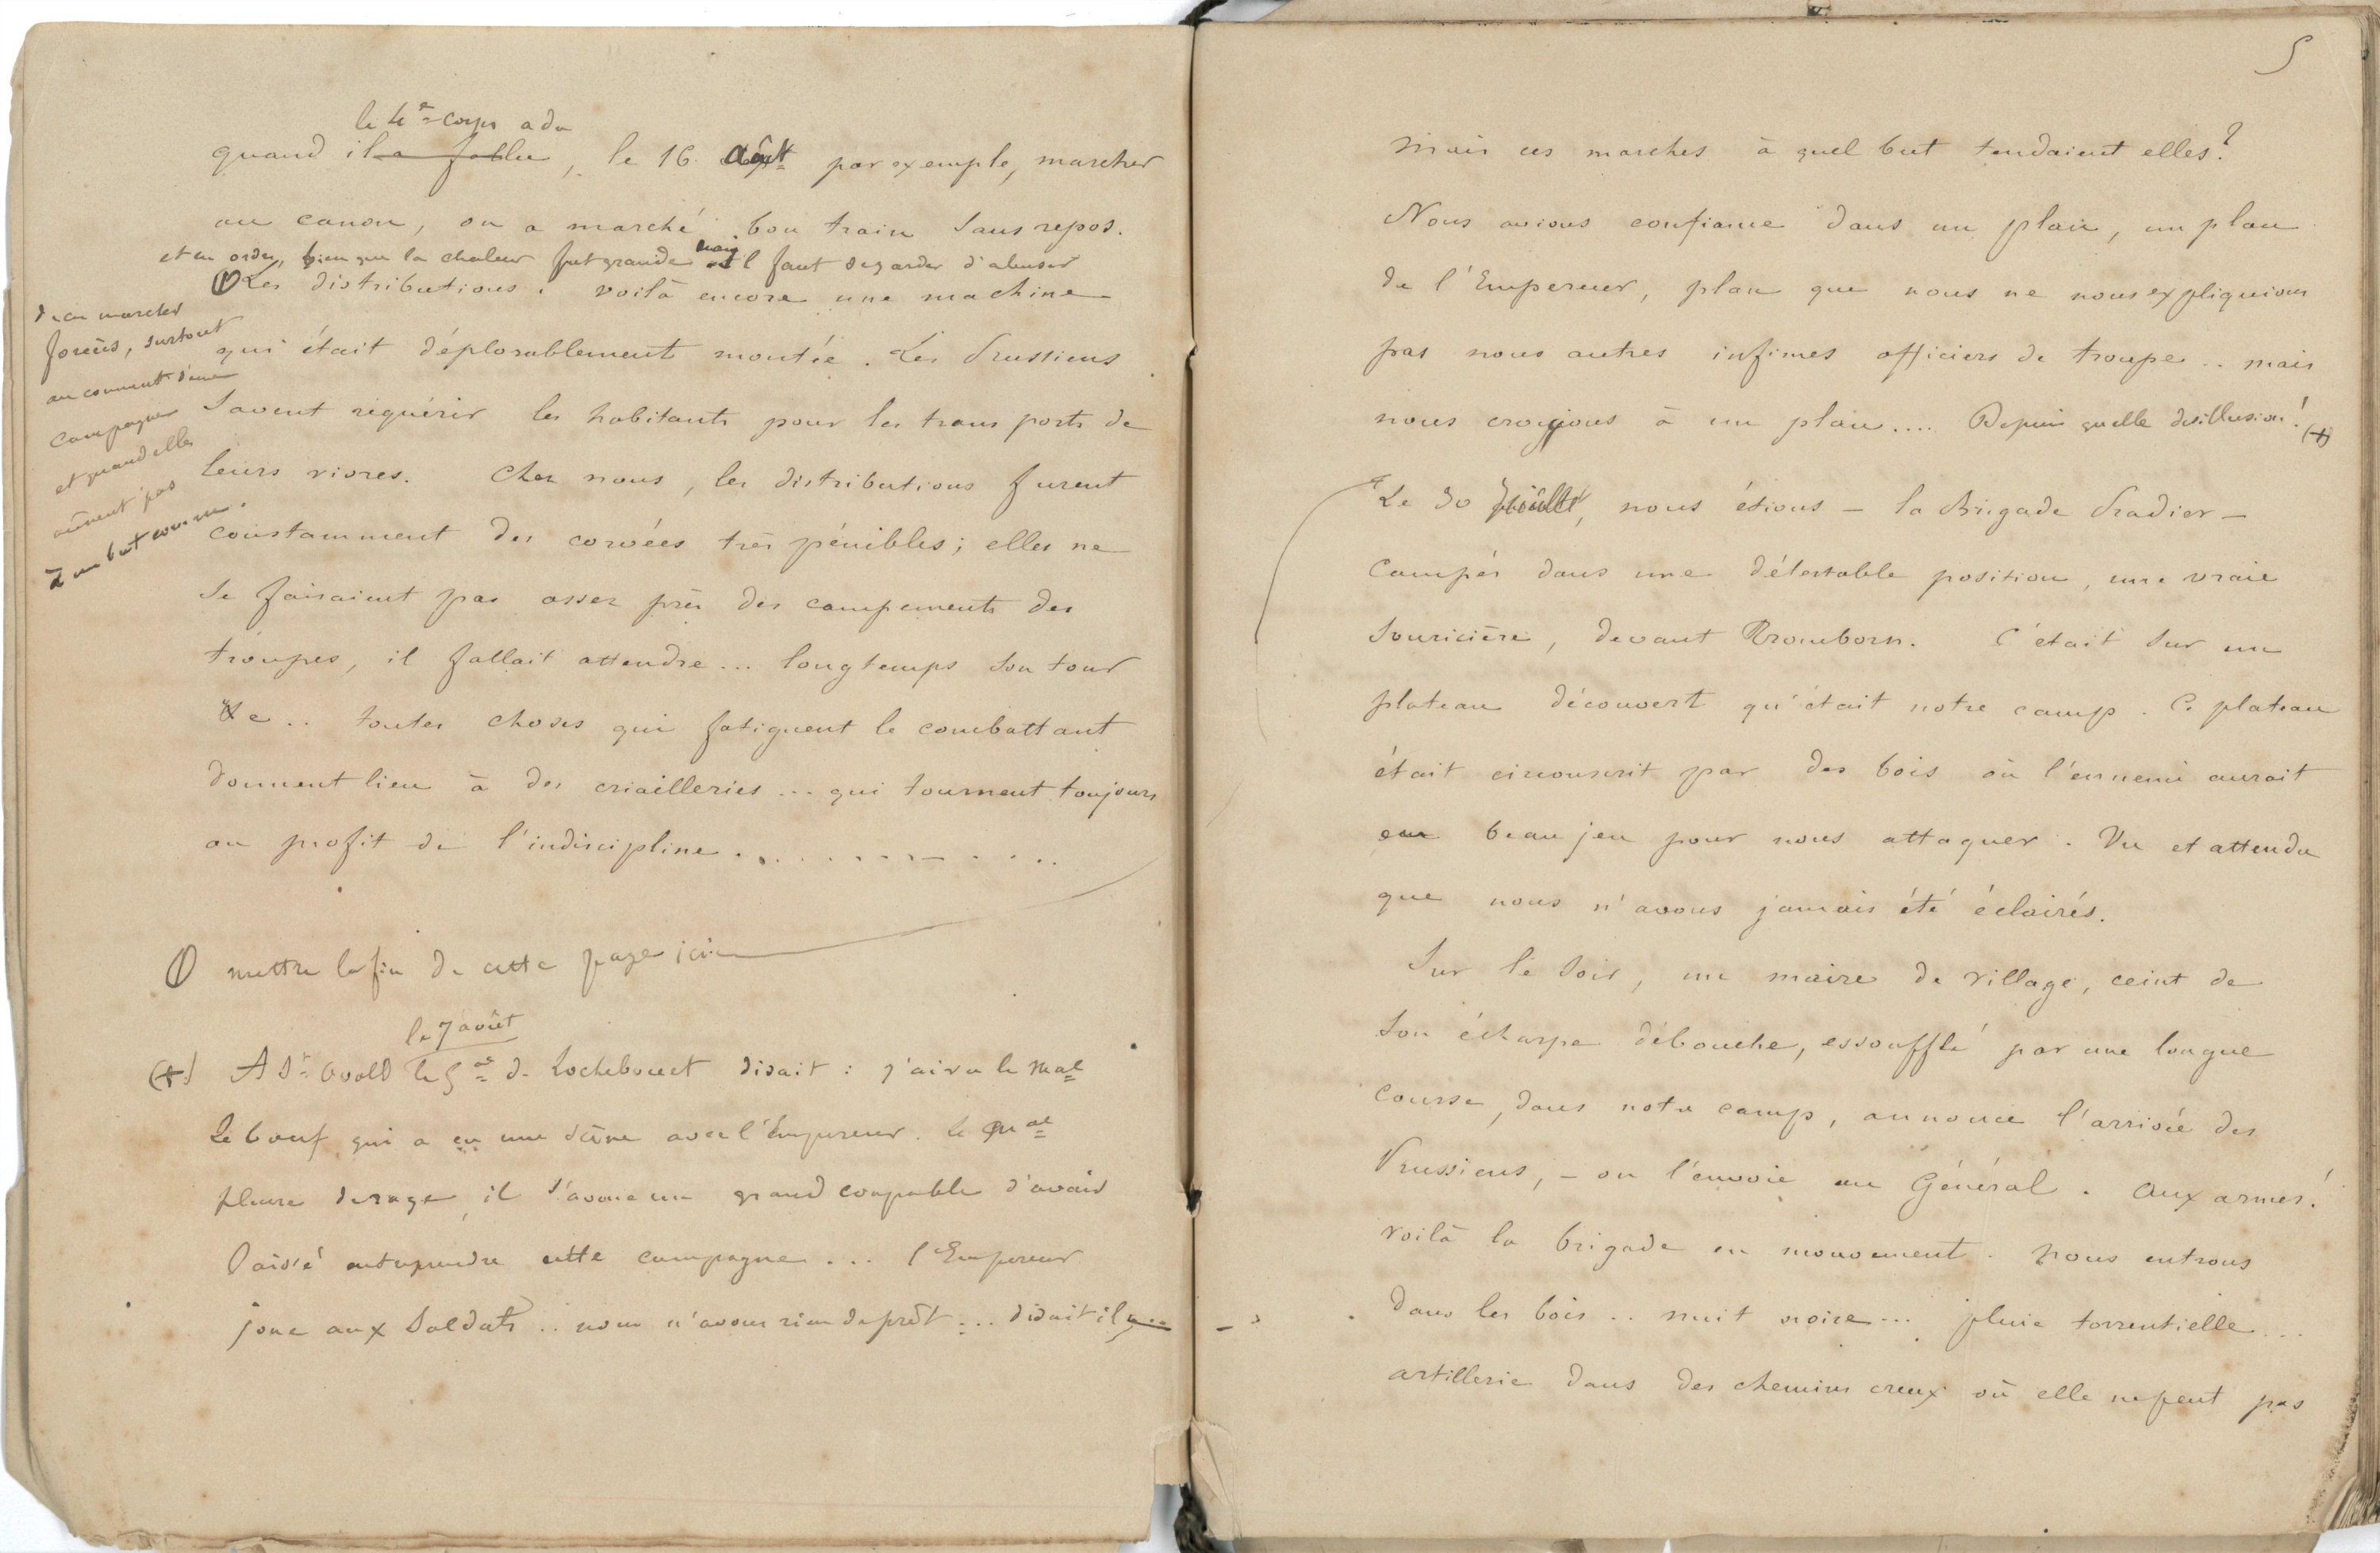 le 4e corps a du
quand il a fallu, le 16 Août par exemple, marcher
au canon, on a marché bon train sans repos.
et en ordre, bien que la chaleur fut grande mais il faut se garder d'abuser
de ces marches
forcées, surtout
au commencent d'une
campagne
et quand elles
n'ont pas
un but connu.
Les distributions. voilà encore une machine
qui était déplorablement montée. Les Prussiens
savent réquérir les habitants pour les transports de
leurs vivres. Chez nous, les distributions furent
constamment des corvées très pénibles; elles ne
se faisaient pas assez près des campements des
troupes, il fallait attendre... longtemps son tour
&c.. toutes choses qui fatiguent le combattant
donnent lieu à des criailleries... qui tournent toujours
au profit de l'indiscipline............
mettre la fin de cette page ici
le 7 août
(+) A St Avold le Gal de Rochebouet disait : j'ai vu le Mal
Le bœuf qui a eu une scène avec l'Empereur. Le Mal
pleure de rage, il s'avoue un grand coupable d'avoir
laissé entreprendre cette campagne... l'Empereur
joue aux Soldats.. nous n'avons rien de prêt... disait il...
5
Mais ces marches à quel but tendaient elles?
Nous avions confiance dans un plan, un plan
de l'Empereur, plan que nous ne nous expliquions
pas nous autres infimes officiers de troupe.. mais
nous croyions à un plan.... Depuis quelle desillusion! (+)
Le 30 Juillet, nous étions - la Brigade Pradier -
Campés dans une détestable position, une vraie
Souricière, devant Tromborn. C'était sur un
plateau découvert qu'était notre camp. Ce plateau
était circonscrit par des bois où l'ennemi aurait
eu beau jeu pour nous attaquer. Vu et attendu
que nous n'avons jamais été éclairés.
Sur le soir, un maire de village, ceint de
son écharpe débouche, essoufflé par une longue
course, dans notre camp, annonce l'arrivée des
Prussiens, - on l'envoie au Général. Aux armes!
voilà la brigade en mouvement. nous entrons
dans les bois.. nuit noire... pluie torrentielle...
artillerie dans des chemins creux où elle ne peut pas